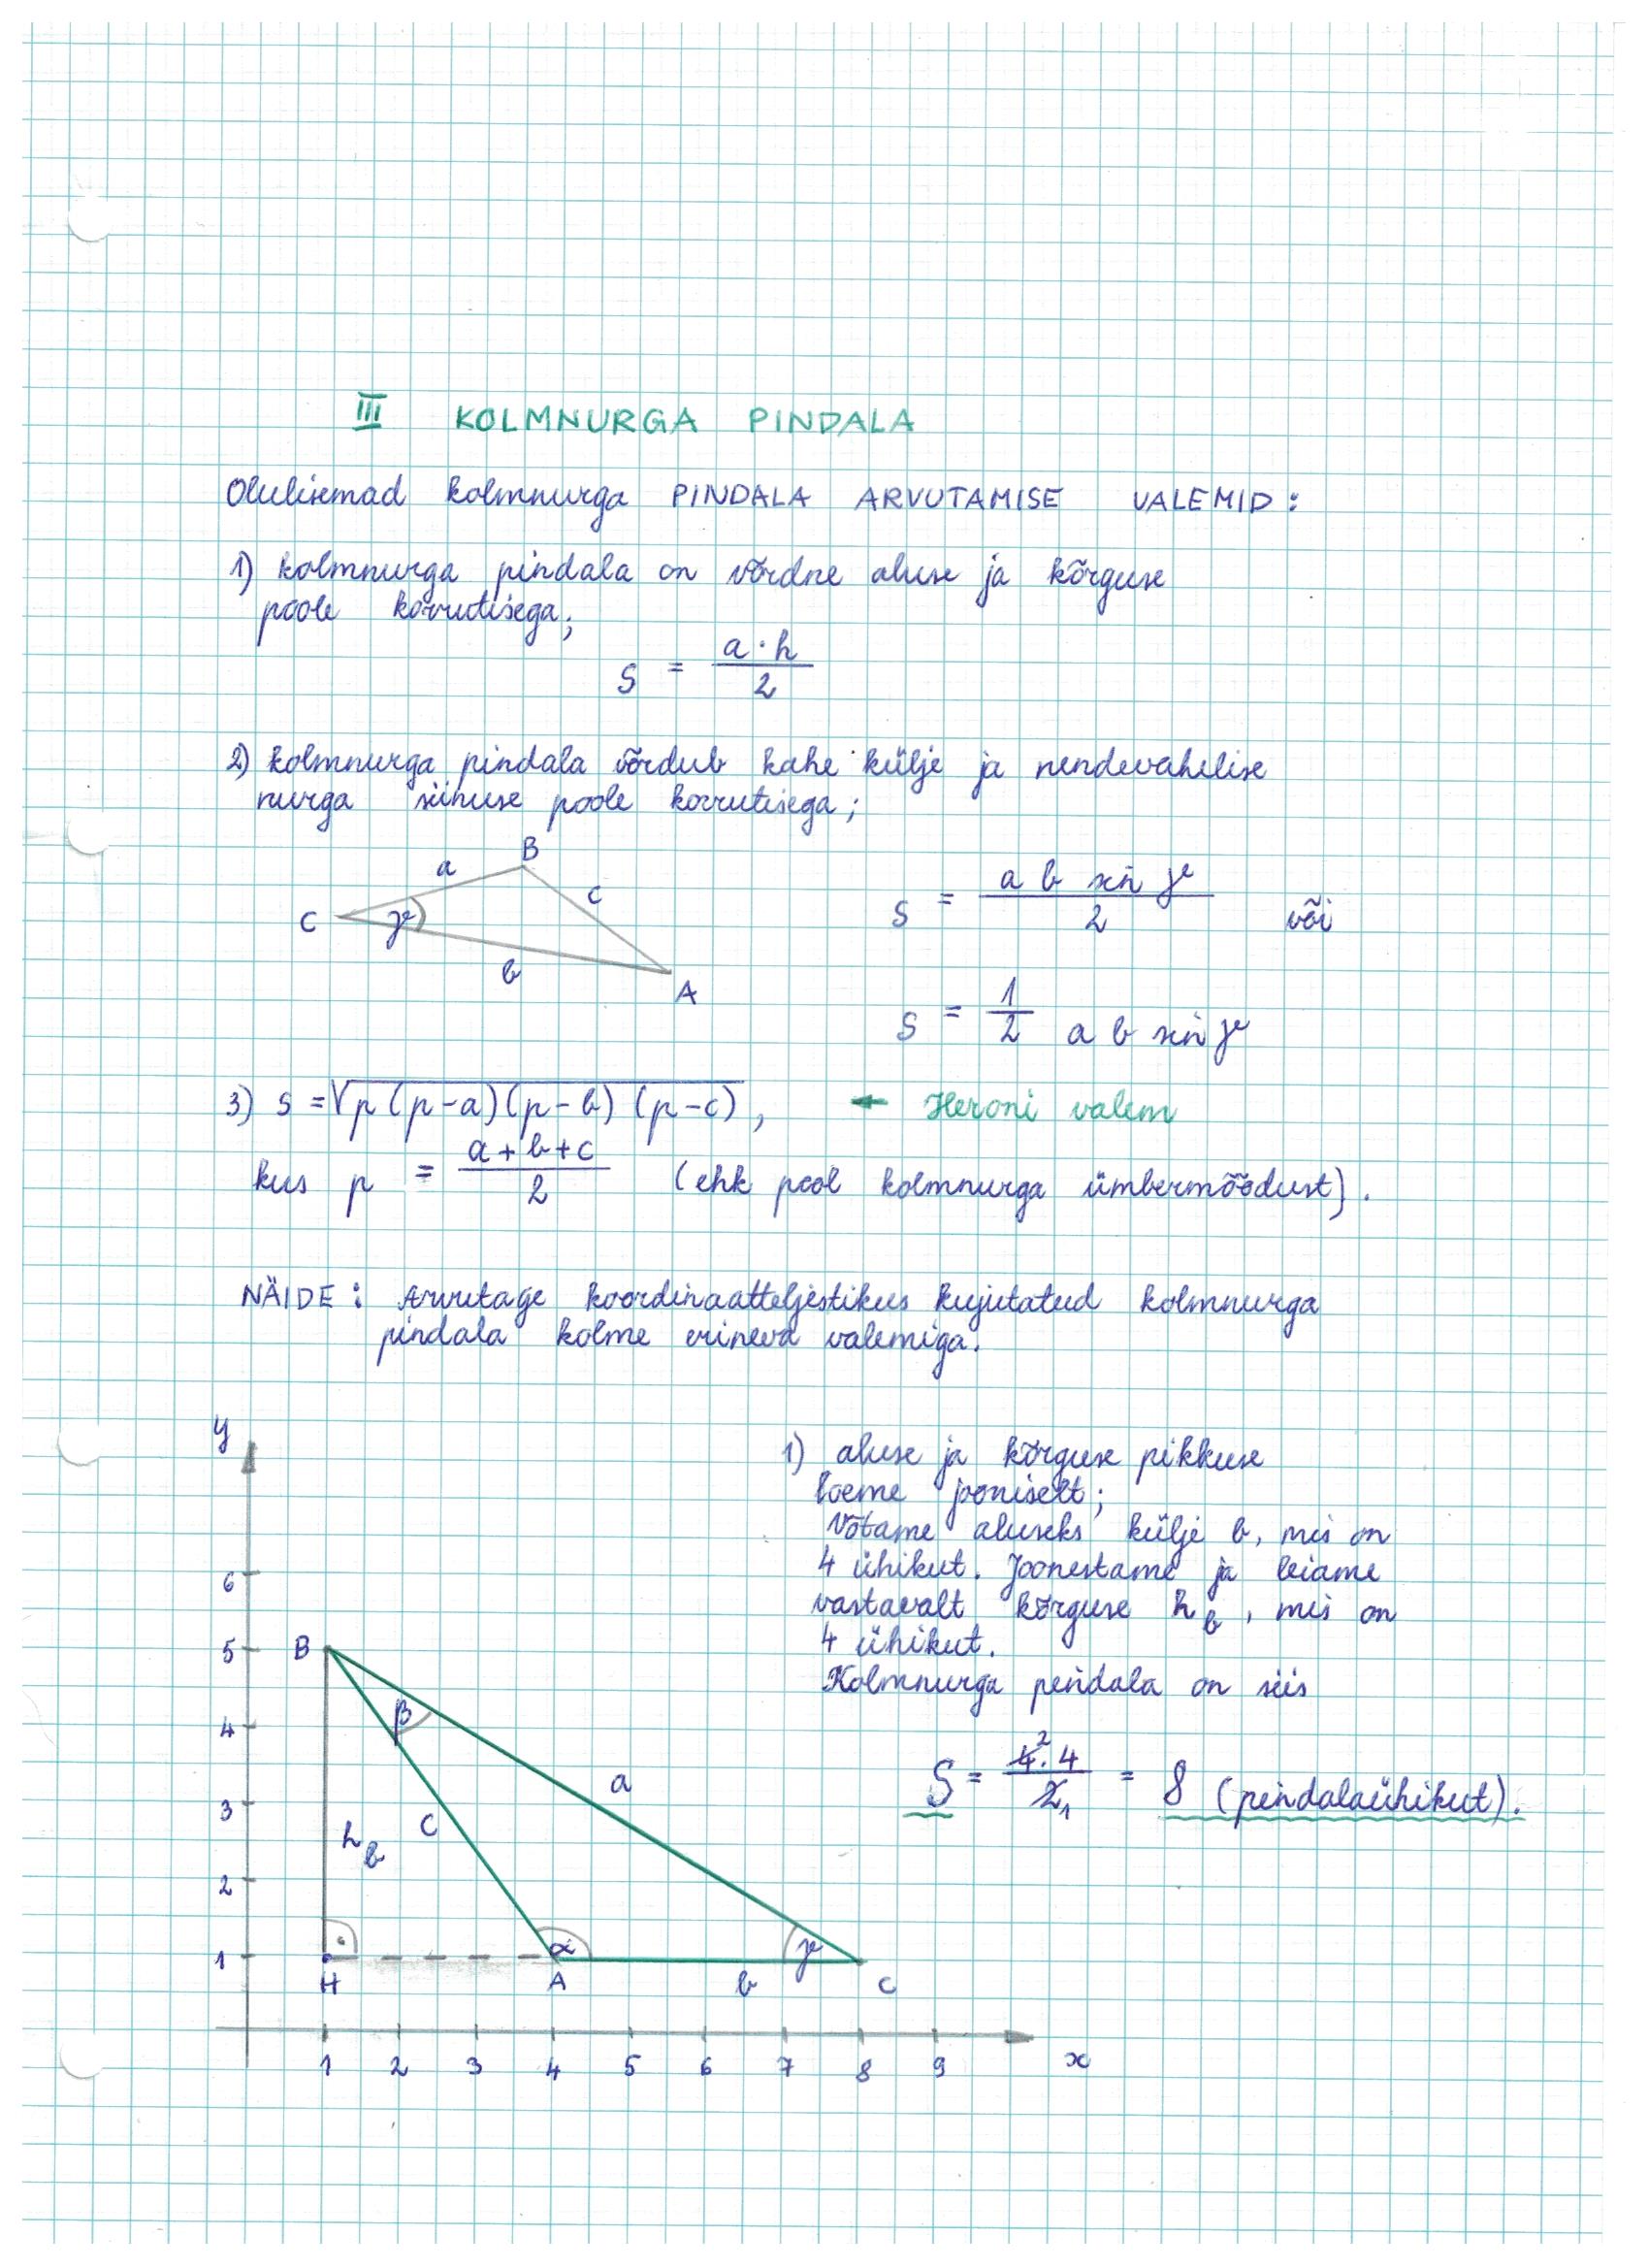 III KOLMNURGA PINDALA
Olulisemad kolmnurga PINDALA ARVUTAMISE VALEMID:
1) kolmnurga pindala on võrdne aluse ja kõrguse
poole korrutisega;
S = a·h / 2
2) kolmnurga pindala võrdub kahe külje ja nendevahelise
nurga siinuse poole korrutisega;
B
a
c
C
γ
b
A
S = a b sin γ / 2 või
S = 1/2 a b sin γ
3) S = √p(p-a)(p-b)(p-c), ← Heroni valem
kus p = a+b+c / 2 (ehk pool kolmnurga ümbermõõdust).
NÄIDE: Arvutage koordinaatteljestikus kujutatud kolmnurga
pindala kolme erineva valemiga.
1) aluse ja kõrguse pikkuse
loeme jooniselt;
Võtame aluseks külje b, mis on
4 ühikut. Joonestame ja leiame
vastavalt kõrguse h_b, mis on
4 ühikut.
Kolmnurga pindala on siis
S = 4² · 4 / 2₁ = 8 (pindalaühikut).
y
6
5 B
4 β
3 a
h_b c
2
1 α γ
H A b C
1 2 3 4 5 6 7 8 9 x